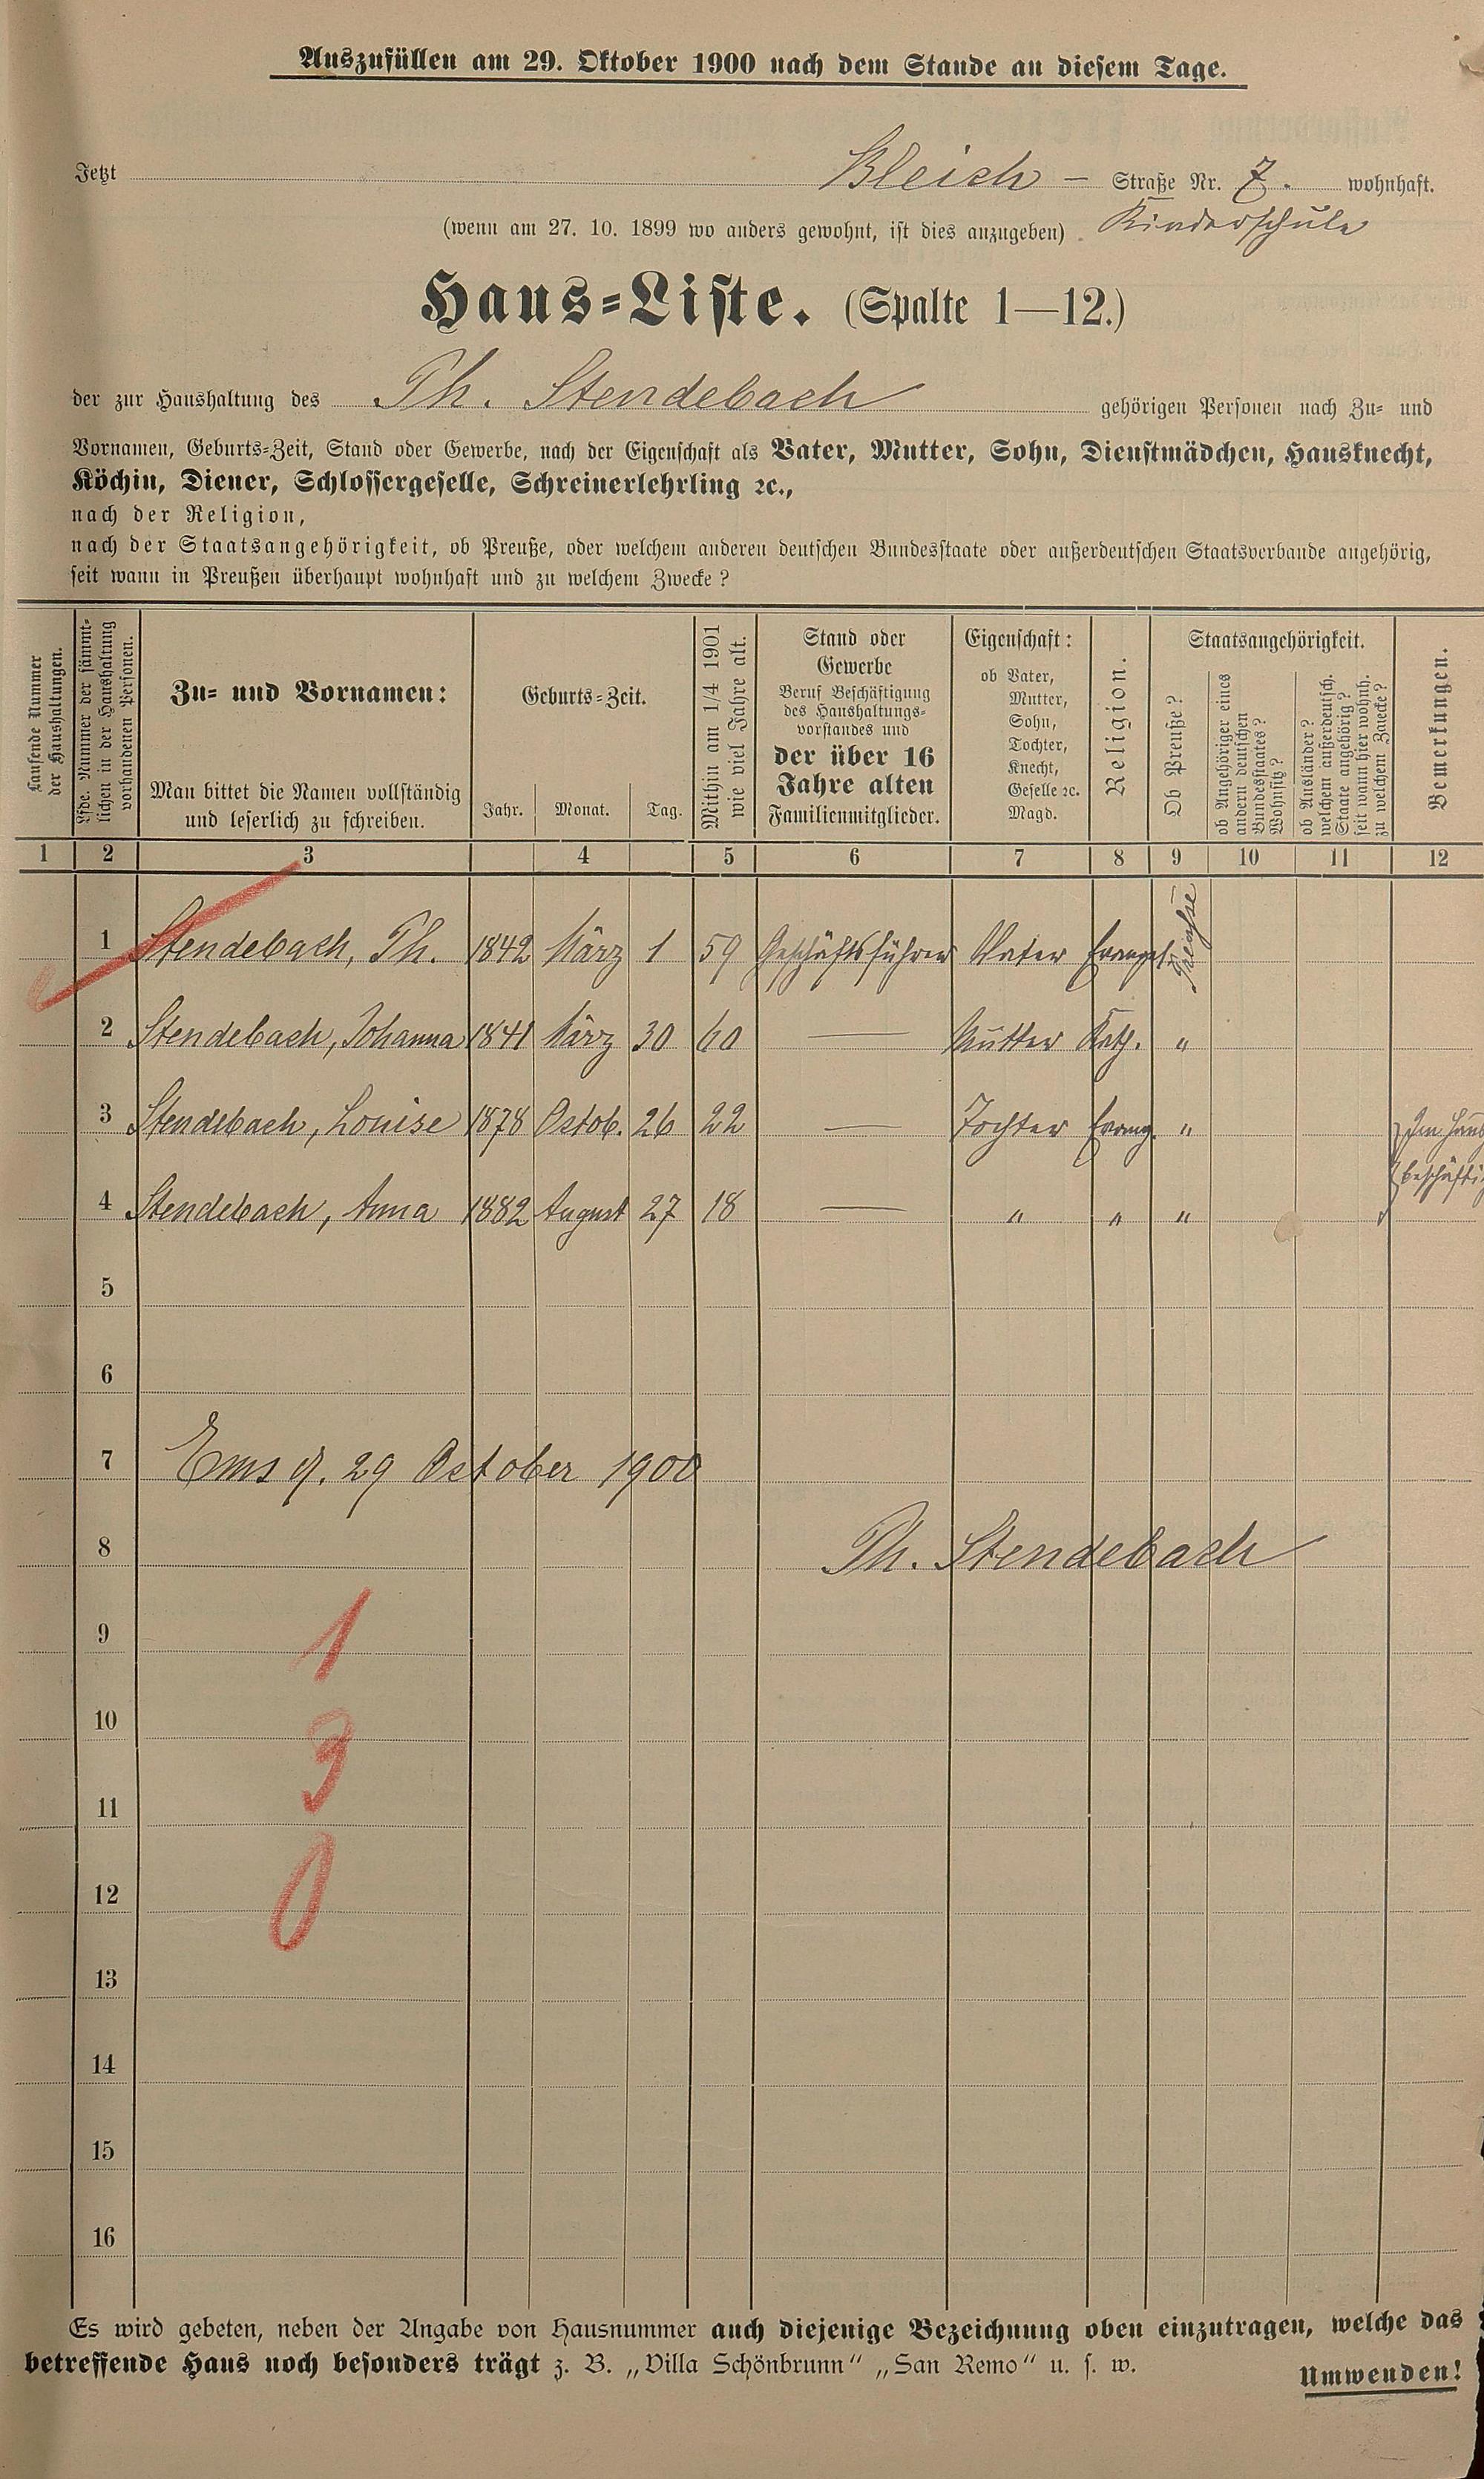 Auszufüllen am 29. Oktober 1900 nach dem Stande an diesem Tage.
Jetzt Bleich – Straße Nr. 7. wohnhaft.
(wenn am 27. 10. 1899 wo anders gewohnt, ist dies anzugeben) Kinderschule
Haus=Liste. (Spalte 1—12.)
der zur Haushaltung des Th. Stendebach gehörigen Personen nach Zu= und
Vornamen, Geburts=Zeit, Stand oder Gewerbe, nach der Eigenschaft als Vater, Mutter, Sohn, Dienstmädchen, Hausknecht,
Köchin, Diener, Schlossergeselle, Schreinerlehrling ꝛc.,
nach der Religion,
nach der Staatsangehörigkeit, ob Preuße, oder welchem anderen deutschen Bundesstaate oder außerdeutschen Staatsverbande angehörig,
seit wann in Preußen überhaupt wohnhaft und zu welchem Zwecke?
Laufende Nummer
der Haushaltungen.
Lfde. Nummer der sämmt=
lichen in der Haushaltung
vorhandenen Personen.
Zu= und Vornamen:
Man bittet die Namen vollständig
und leserlich zu schreiben.
Geburts=Zeit.
Jahr. Monat. Tag.
Mithin am 1/4 1901
wie viel Jahre alt.
Stand oder
Gewerbe
Beruf Beschäftigung
des Haushaltungs=
vorstandes und
der über 16
Jahre alten
Familienmitglieder.
Eigenschaft:
ob Vater,
Mutter,
Sohn,
Tochter,
Knecht,
Geselle ꝛc.
Magd.
Religion.
Staatsangehörigkeit.
Ob Preuße?
ob Angehöriger eines
andern deutschen
Bundesstaates?
Wohnsitz?
ob Ausländer?
welchem außerdeutsch.
Staate angehörig?
seit wann hier wohnh.
zu welchem Zwecke?
Bemerkungen.
1 2 3 4 5 6 7 8 9 10 11 12
1 Stendebach, Th. 1842 März 1 59 Geschäftsführer Vater Evangel. Preusse
2 Stendebach, Johanna 1841 März 30 60 — Mutter Kath. "
3 Stendebach, Louise 1878 Octob. 26 22 — Tochter Evang. " Im Haus
beschäfti
4 Stendebach, Anna 1882 August 27 18 — " " "
5
6
7 Ems d. 29 October 1900
8 Th. Stendebach
9 1
10 3
11
12 0
13
14
15
16
Es wird gebeten, neben der Angabe von Hausnummer auch diejenige Bezeichnung oben einzutragen, welche das
betreffende Haus noch besonders trägt z. B. „Villa Schönbrunn" „San Remo" u. s. w.
Umwenden!